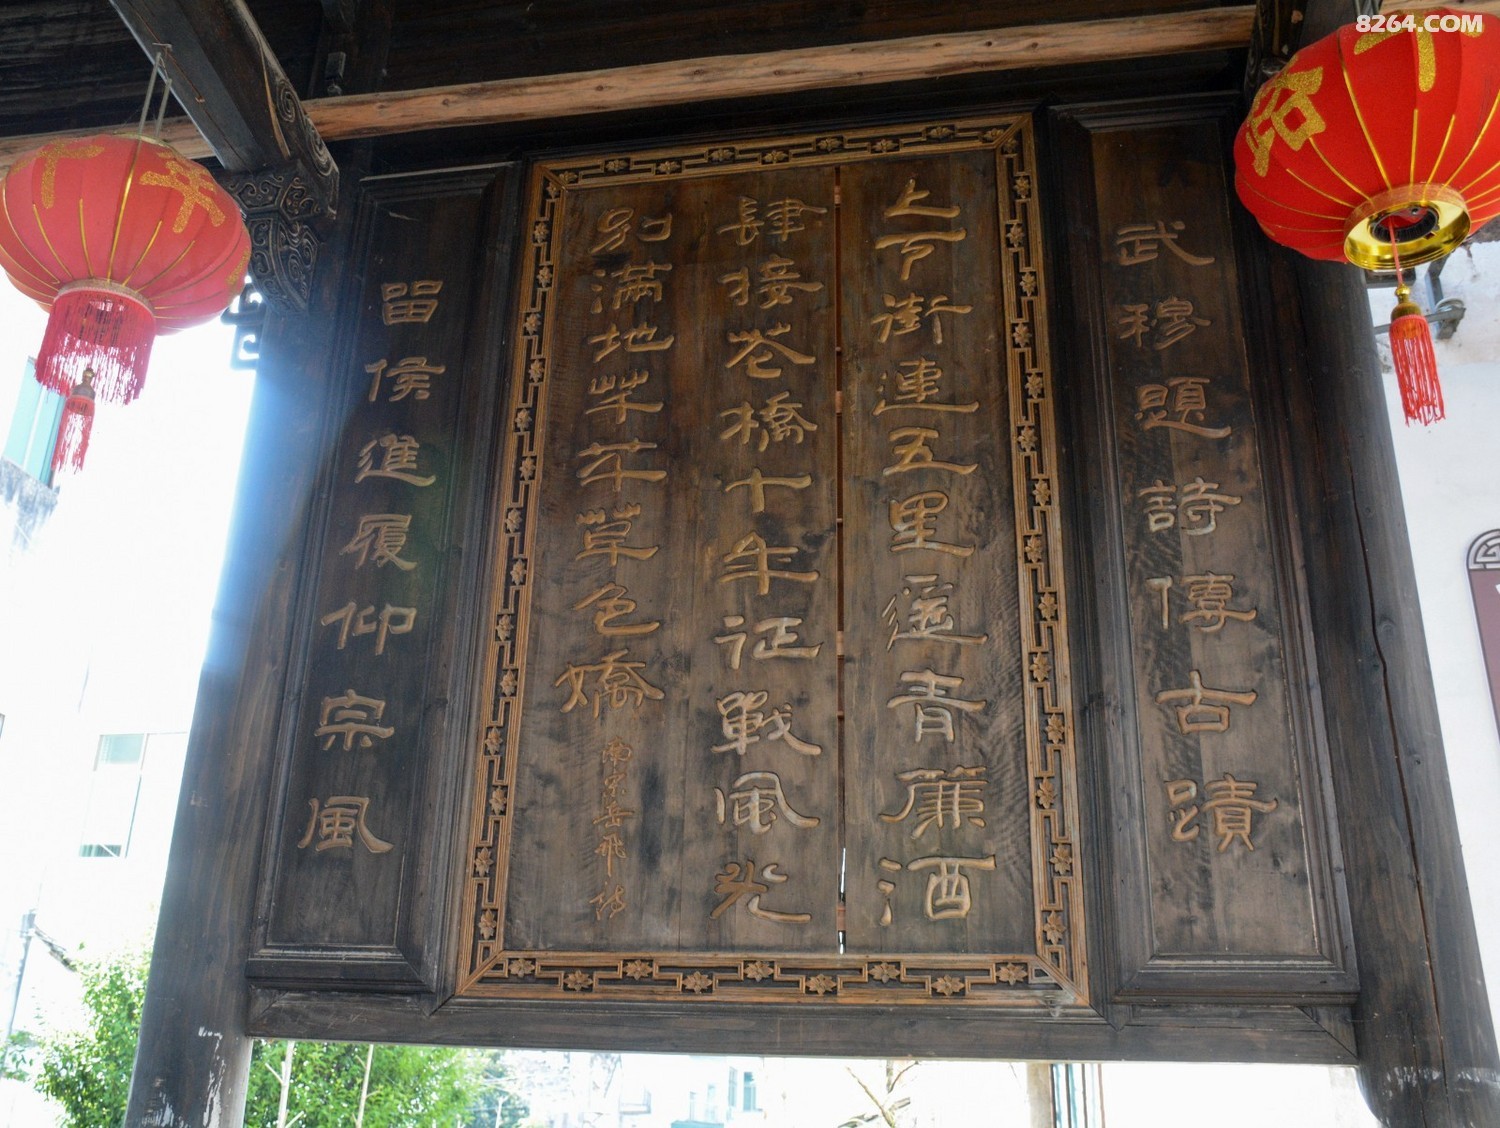 8264.COM
武穆題詩傳古蹟
上下街連五里遥青簾酒
肆接花橋十年征戰風光
别滿地芊芊草色嬌
南宋岳飛詩
留侯進履仰宗風